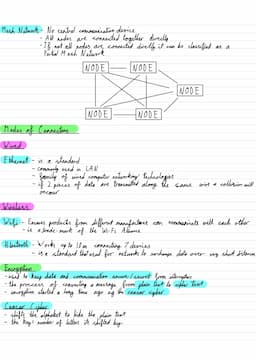 Mesh Network - No central communication device
- All nodes are connected together directly
- If not all nodes are connected directly it can be classified as a
Partial Mesh Network
NODE NODE
NODE
NODE NODE
Modes of Connection
Wired
Ethernet - is a standard
- commonly used in LAN
- family of wired computer networking technologies
- if 2 pieces of data are transmitted along the same wire a collision will
occur
Wireless
Wifi - Ensures products from different manufacturers can communicate with each other
- is a trade mark of the Wi-Fi Alliance
Bluetooth - Works up to 10m connecting 7 devices
- is a standard that used for networks to exchange data over very short distances
Encryption
- used to keep data and communication secure/secret from interceptors
- the process of converting a message from plain text to cipher text
- encryption started a long time ago eg the caesar cipher
Caesar Cipher
- shifts the alphabet to hide the plain text
- the key: number of letters its shifted by.